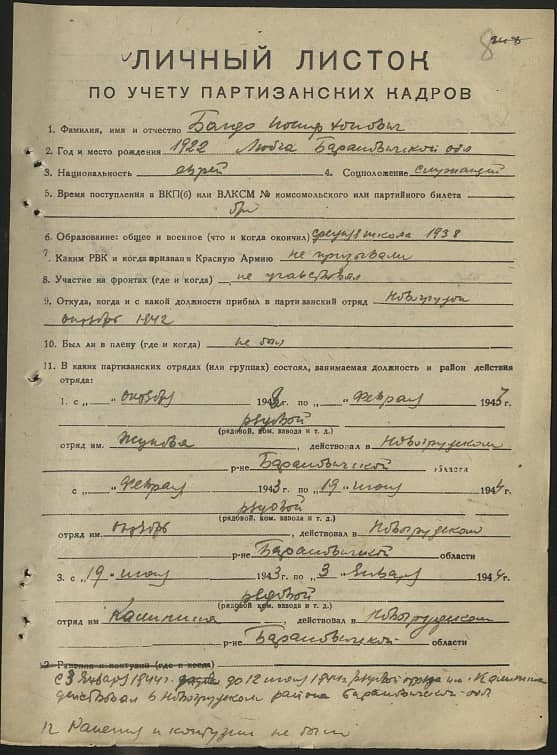 8
ЛИЧНЫЙ ЛИСТОК
ПО УЧЕТУ ПАРТИЗАНСКИХ КАДРОВ
1. Фамилия, имя и отчество
2. Год и место рождения 1922 Любча Барановичской обл
3. Национальность еврей 4. Соцположение служащий
5. Время поступления в ВКП(б) или ВЛКСМ № комсомольского или партийного билета
б/п
6. Образование: общее и военное (что и когда окончил) средняя школа 1938
7. Каким РВК и когда призван в Красную Армию не призывали
8. Участие на фронтах (где и когда) не участвовал
9. Откуда, когда и с какой должности прибыл в партизанский отряд Новогрудок
октябрь 1942
10. Был ли в плену (где и когда) не был
11. В каких партизанских отрядах (или группах) состоял, занимаемая должность и район действия
отряда:
1. с „ " октября 194 г. по „ " февраль 1943 г.
рядовой
(рядовой, ком. взвода и т. д.)
отряд им. Жукова, действовал в Новогрудском
р-не Барановичской области
с „ " февраля 1943 г. по „19" июля 194 г.
рядовой
(рядовой, ком. взвода и т. д.)
отряд им. октябрь, действовал в Новогрудском
р-не Барановичской области
3. с „19" июля 1943 г. по „3" января 1944 г.
рядовой
(рядовой, ком. взвода и т. д.)
отряд им Калинина, действовал в Новогрудском
р-не Барановичской области
2. Ранения и контузий (где и когда)
с 3 января 1944 г. до 12 июля 1944 г. рядовой отряда им. Калинина
действовал в Новогрудском района Барановичской обл
12 Ранения и контузии не было